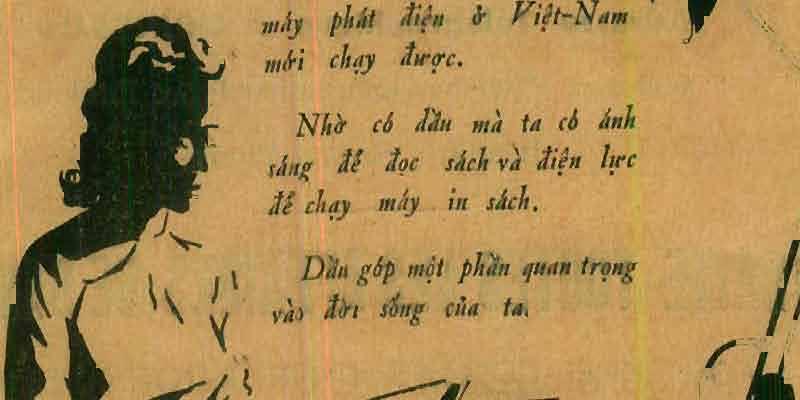 máy phát điện ở Việt-Nam
mới chạy được.
Nhờ có dầu mà ta có ánh
sáng để đọc sách và điện lực
để chạy máy in sách.
Dầu góp một phần quan trọng
vào đời sống của ta.